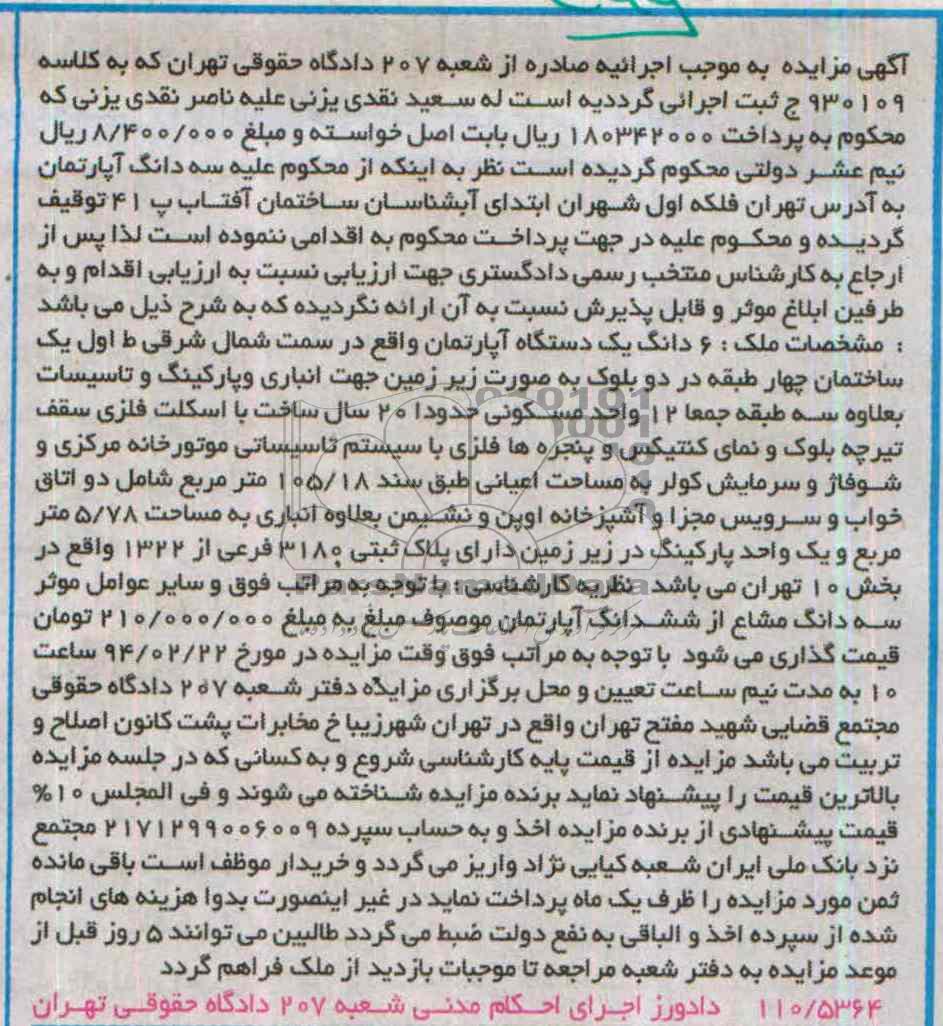 آگهی مزایده به موجب اجرائیه صادره از شعبه ۲۰۷ دادگاه حقوقی تهران که به کلاسه
۹۳۰۱۰۹ ج ثبت اجرائی گرددیه است له سعید نقدی یزنی علیه ناصر نقدی یزنی که
محکوم به پرداخت ۱۸۰۳۴۲۰۰۰ ریال بابت اصل خواسته و مبلغ ۸/۴۰۰/۰۰۰ ریال
نیم عشر دولتی محکوم گردیده است نظر به اینکه از محکوم علیه سه دانگ آپارتمان
به آدرس تهران فلکه اول شهران ابتدای آبشناسان ساختمان آفتاب پ ۴۱ توقیف
گردیده و محکوم علیه در جهت پرداخت محکوم به اقدامی ننموده است لذا پس از
ارجاع به کارشناس منتخب رسمی دادگستری جهت ارزیابی نسبت به ارزیابی اقدام و به
طرفین ابلاغ موثر و قابل پذیرش نسبت به آن ارائه نگردیده که به شرح ذیل می باشد
: مشخصات ملک : ۶ دانگ یک دستگاه آپارتمان واقع در سمت شمال شرقی ط اول یک
ساختمان چهار طبقه در دو بلوک به صورت زیر زمین جهت انباری وپارکینگ و تاسیسات
بعلاوه سه طبقه جمعا ۱۲ واحد مسکونی حدودا ۲۰ سال ساخت با اسکلت فلزی سقف
تیرچه بلوک و نمای کنتیکس و پنجره ها فلزی با سیستم تاسیساتی موتورخانه مرکزی و
شوفاژ و سرمایش کولر به مساحت اعیانی طبق سند ۱۰۵/۱۸ متر مربع شامل دو اتاق
خواب و سرویس مجزا و آشپزخانه اوپن و نشیمن بعلاوه انباری به مساحت ۵/۷۸ متر
مربع و یک واحد پارکینگ در زیر زمین دارای پلاک ثبتی ۳۱۸۰ فرعی از ۱۳۲۲ واقع در
بخش ۱۰ تهران می باشد نظریه کارشناسی : با توجه به مراتب فوق و سایر عوامل موثر
سه دانگ مشاع از ششدانگ آپارتمان موصوف مبلغ به مبلغ ۲۱۰/۰۰۰/۰۰۰ تومان
قیمت گذاری می شود با توجه به مراتب فوق وقت مزایده در مورخ ۹۴/۰۲/۲۲ ساعت
۱۰ به مدت نیم ساعت تعیین و محل برگزاری مزایده دفتر شعبه ۲۰۷ دادگاه حقوقی
مجتمع قضایی شهید مفتح تهران واقع در تهران شهرزیبا خ مخابرات پشت کانون اصلاح و
تربیت می باشد مزایده از قیمت پایه کارشناسی شروع و به کسانی که در جلسه مزایده
بالاترین قیمت را پیشنهاد نماید برنده مزایده شناخته می شوند و فی المجلس ۱۰%
قیمت پیشنهادی از برنده مزایده اخذ و به حساب سپرده ۲۱۷۱۲۹۹۰۰۶۰۰۹ مجتمع
نزد بانک ملی ایران شعبه کیایی نژاد واریز می گردد و خریدار موظف است باقی مانده
ثمن مورد مزایده را ظرف یک ماه پرداخت نماید در غیر اینصورت بدوا هزینه های انجام
شده از سپرده اخذ و الباقی به نفع دولت ضبط می گردد طالبین می توانند ۵ روز قبل از
موعد مزایده به دفتر شعبه مراجعه تا موجبات بازدید از ملک فراهم گردد
۱۱۰/۵۳۶۴ دادورز اجرای احکام مدنی شعبه ۲۰۷ دادگاه حقوقی تهران